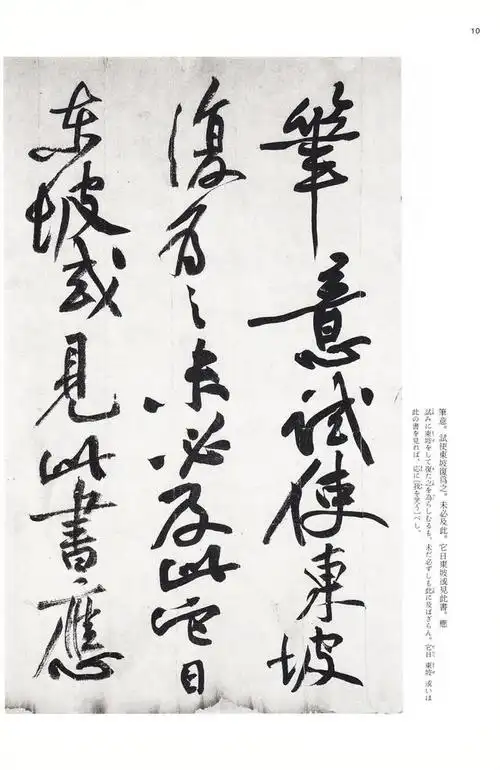 10
筆意試使東坡
復為之未必及此它日
东坡或見此書應
筆意。試使東坡復爲之。未必及此。它日東坡或見此書。應
試みに東坡をして復た之を為らしむるも、未だ必ずしも此に及ばざらん。它日 東坡 或いは
此の書を見れば、応に〔我を笑う〕べし。